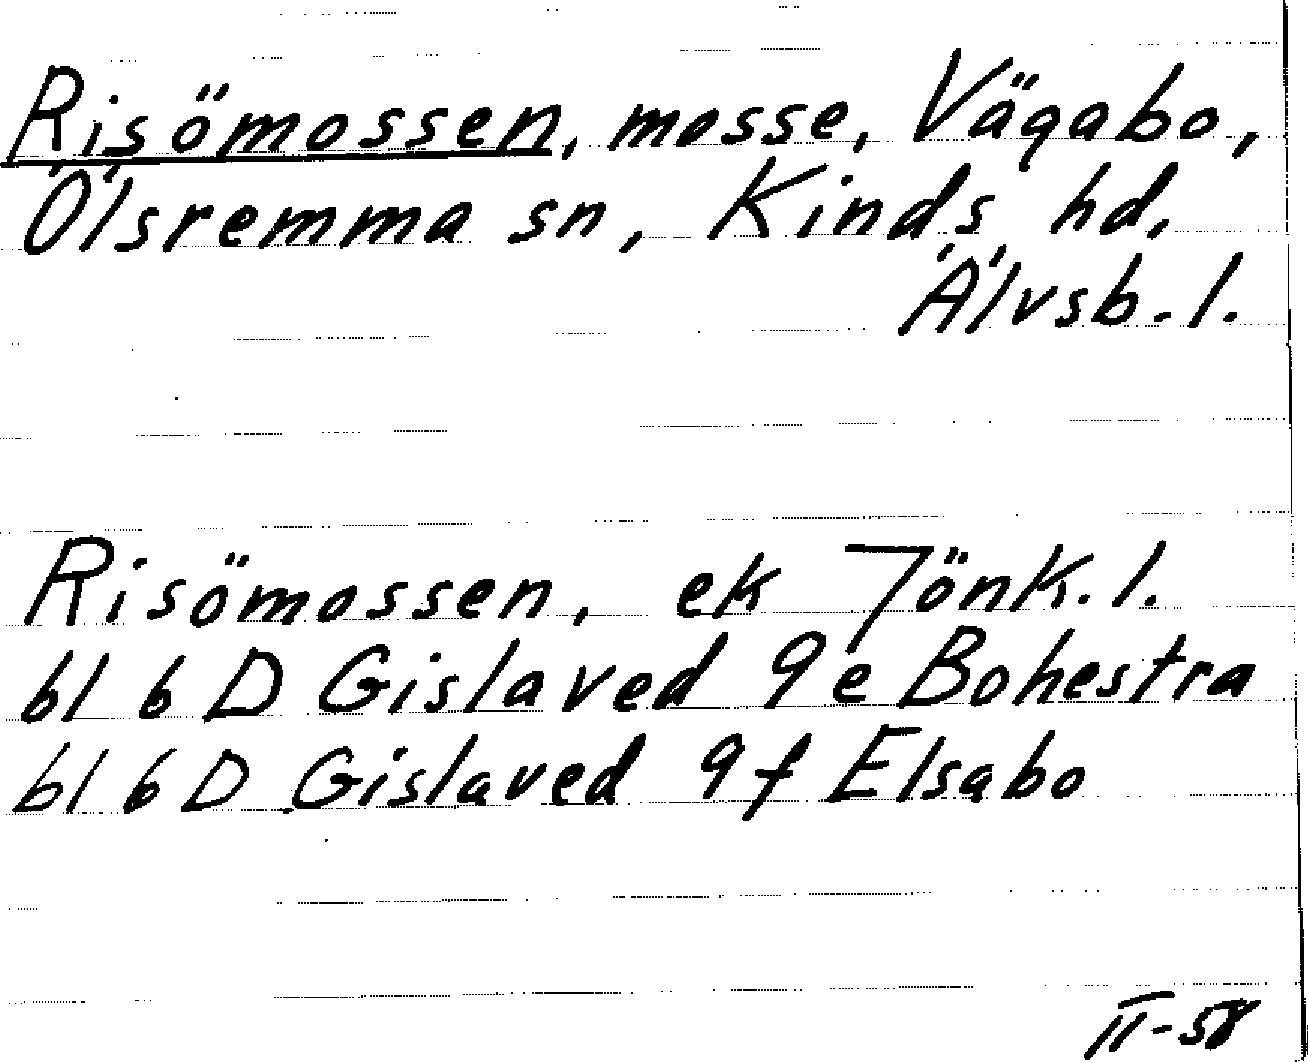 Risömossen, mosse, Vägabo,
Ölsremma sn, Kinds hd,
Älvsb. l.
Risömossen, ek Jönk. l.
bl 6 D Gislaved 9e Bohestra
bl 6 D Gislaved 9f Elsabo
II-58